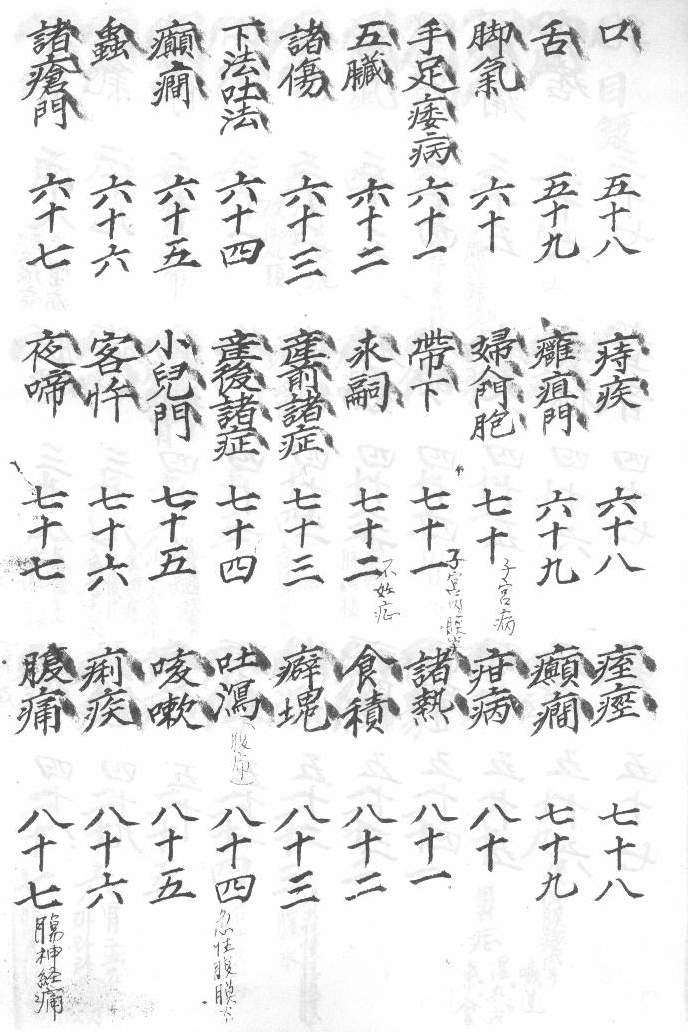 口 五十八
舌 五十九
脚氣 六十
手足痿病 六十一
五臟 六十二
諸傷 六十三
下法吐法 六十四
癲癎 六十五
蟲 六十六
諸瘡門 六十七
痔疾 六十八
癰疽門 六十九
婦人門胞 七十 子宮病
帶下 七十一 子宮内膜炎
求嗣 七十二 不姙症
産前諸症 七十三
産後諸症 七十四
小兒門 七十五
客忤 七十六
夜啼 七十七
痓痙 七十八
癲癎 七十九
疳病 八十
諸熱 八十一
食積 八十二
癖塊 八十三
吐瀉(腹痛) 八十四 急性腹膜炎
咳嗽 八十五
痢疾 八十六
腹痛 八十七 腸神経痛